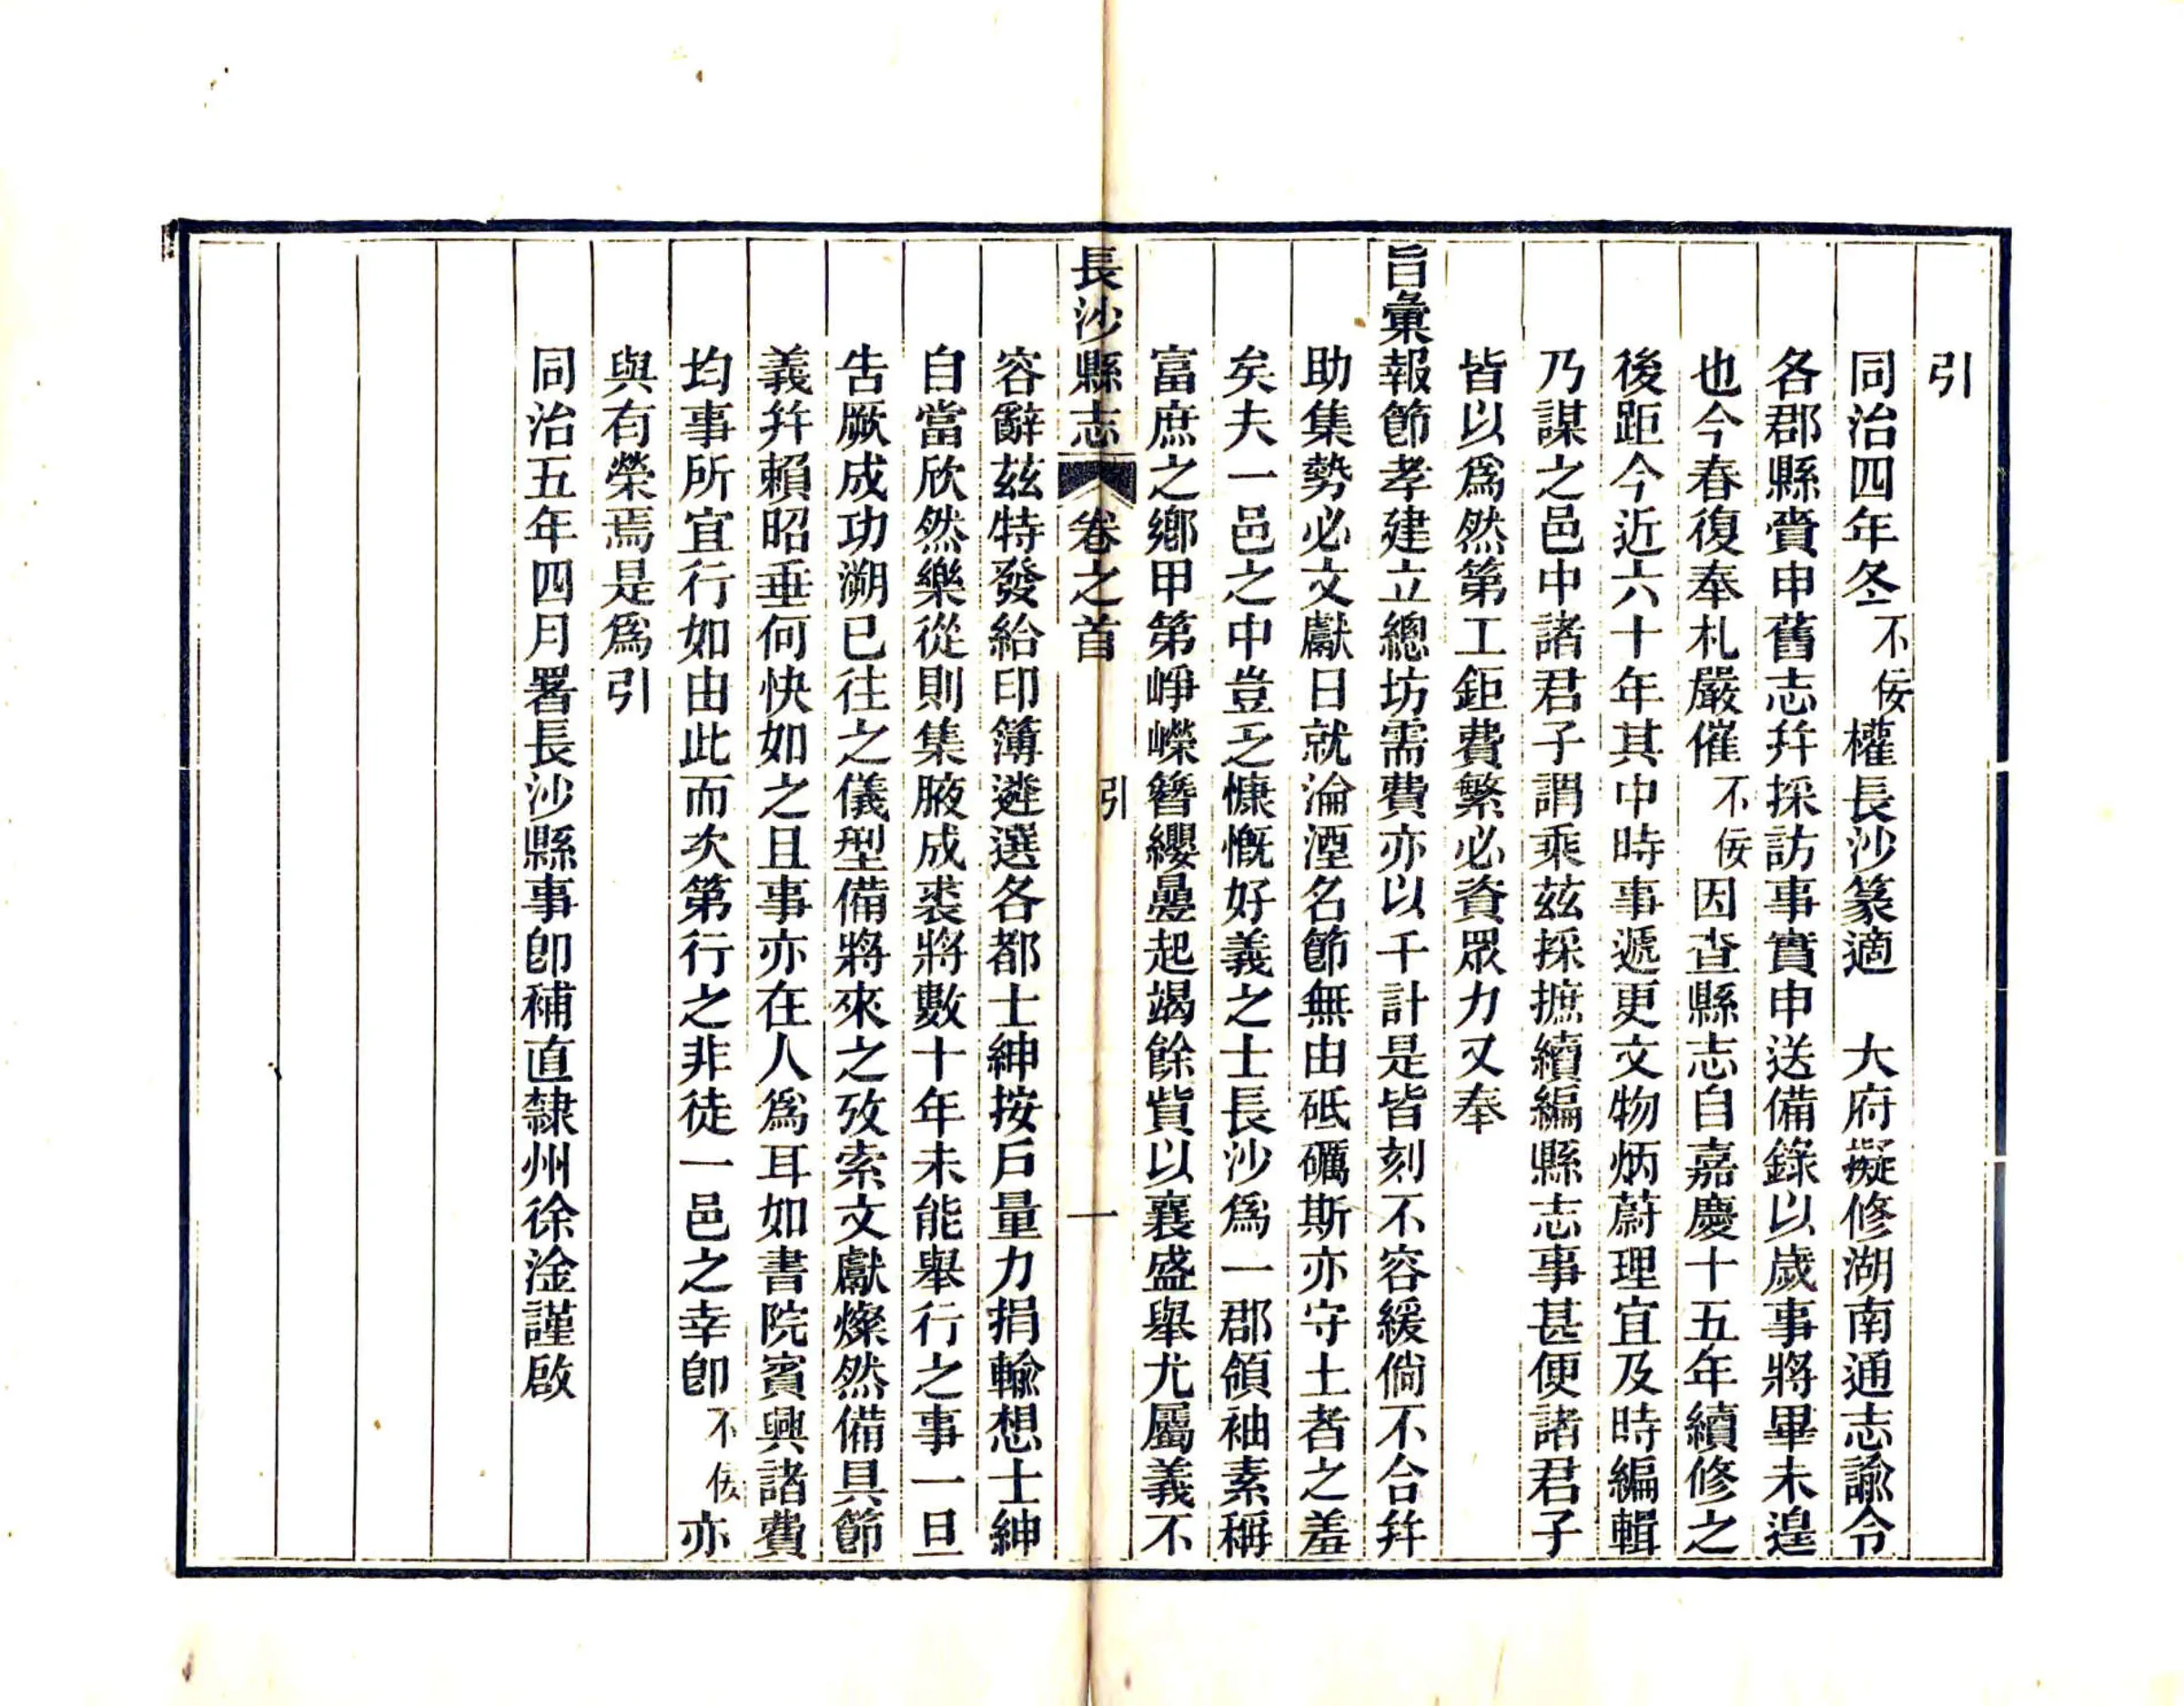 引
同治四年冬不佞權長沙篆適　大府擬修湖南通志諭令
各郡縣賫申舊志幷採訪事實申送備錄以歲事將畢未遑
也今春復奉札嚴催不佞因查縣志自嘉慶十五年續修之
後距今近六十年其中時事遞更文物炳蔚理宜及時編輯
乃謀之邑中諸君子謂乘茲採摭續編縣志事甚便諸君子
皆以爲然第工鉅費繁必資眾力又奉
旨彙報節孝建立總坊需費亦以千計是皆刻不容緩倘不合幷
助集勢必文獻日就淪湮名節無由砥礪斯亦守土者之羞
矣夫一邑之中豈乏慷慨好義之士長沙爲一郡領袖素稱
富庶之鄕甲第崢嶸簪纓疉起竭餘貲以襄盛舉尤屬義不
長沙縣志 卷之首 引 一
容辭茲特發給印簿遴選各都士紳按戶量力捐輸想士紳
自當欣然樂從則集腋成裘將數十年未能舉行之事一旦
告厥成功溯已往之儀型備將來之攷索文獻燦然備具節
義幷賴昭垂何快如之且事亦在人爲耳如書院賓興諸費
均事所宜行如由此而次第行之非徒一邑之幸卽不佞亦
與有榮焉是爲引
同治五年四月署長沙縣事卽補直隸州徐淦謹啟